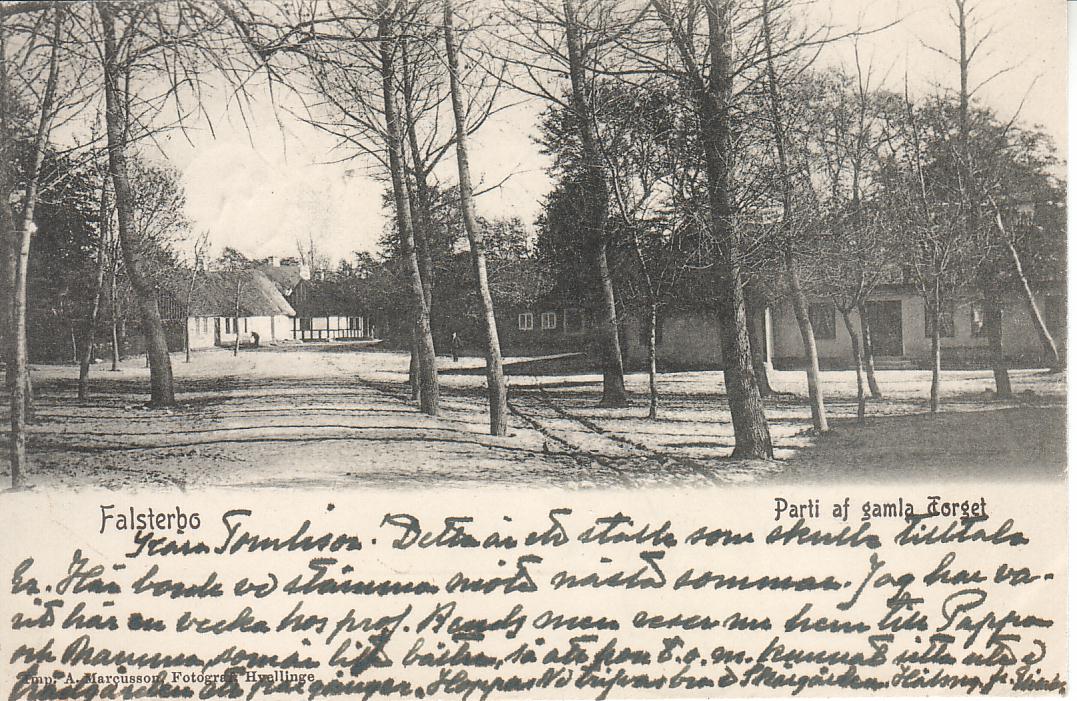 Falsterbo
Parti af gamla Torget
Kära Tomlison. Detta är ett ställe som skulle tilltala
Er. Här borde vi stämma möte nästa sommar. Jag har va-
rit här en vecka hos prof. men reser nu hem till Pappa
och Mamma, som är litet bättre, så att hon t.o.m. kunnat sitta ute i
trädgården ett par gånger. Hoppas Ni trifvas bra i Skärgården. Hälsn. fr.
Imp. A. Marcusson, Fotograf Hvellinge